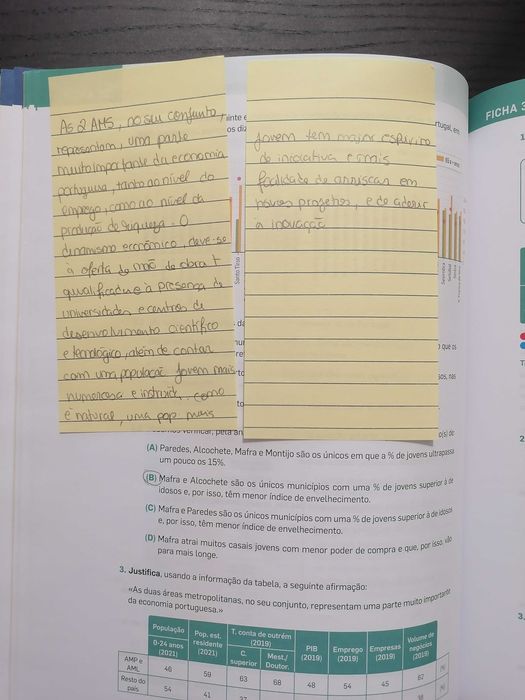 As 2 AMS, no seu conjunto,
representam, uma parte
muito importante da economia
portuguesa, tanto ao nível do
emprego, como ao nível da
produção de riqueza. O
dinamismo económico, deve-se
à oferta de mão de obra +
qualificada e à presença de
universidades e centros de
desenvolvimento científico
e tecnológico, além de contar
com uma população jovem mais
numerosa e instruída. como
é natural, uma pop. mais
jovem tem maior espírito
de iniciativa e mais
facilidade de arriscar em
novos projetos, e de aderir
à inovação
inte e
os di
rtugal, em
Santo Tirso
FICHA 3
1.
(A) Paredes, Alcochete, Mafra e Montijo são os únicos em que a % de jovens ultrapassa
um pouco os 15%.
(B) Mafra e Alcochete são os únicos municípios com uma % de jovens superior à de
idosos e, por isso, têm menor índice de envelhecimento.
(C) Mafra e Paredes são os únicos municípios com uma % de jovens superior à de idosos
e, por isso, têm menor índice de envelhecimento.
(D) Mafra atrai muitos casais jovens com menor poder de compra e que, por isso, vão
para mais longe.
3. Justifica, usando a informação da tabela, a seguinte afirmação:
«As duas áreas metropolitanas, no seu conjunto, representam uma parte muito importante
da economia portuguesa.»
População
0-24 anos
(2021)
Pop. est.
residente
(2021)
T. conta de outrém
(2019)
C.
superior
Mest./
Doutor.
PIB
(2019)
Emprego
(2019)
Empresas
(2019)
Volume de
negócios
(2019)
AMP e
AML
46 59 63 68 48 54 45 62 (%)
Resto do
país
54 41 37 38 (%)
2.
3.